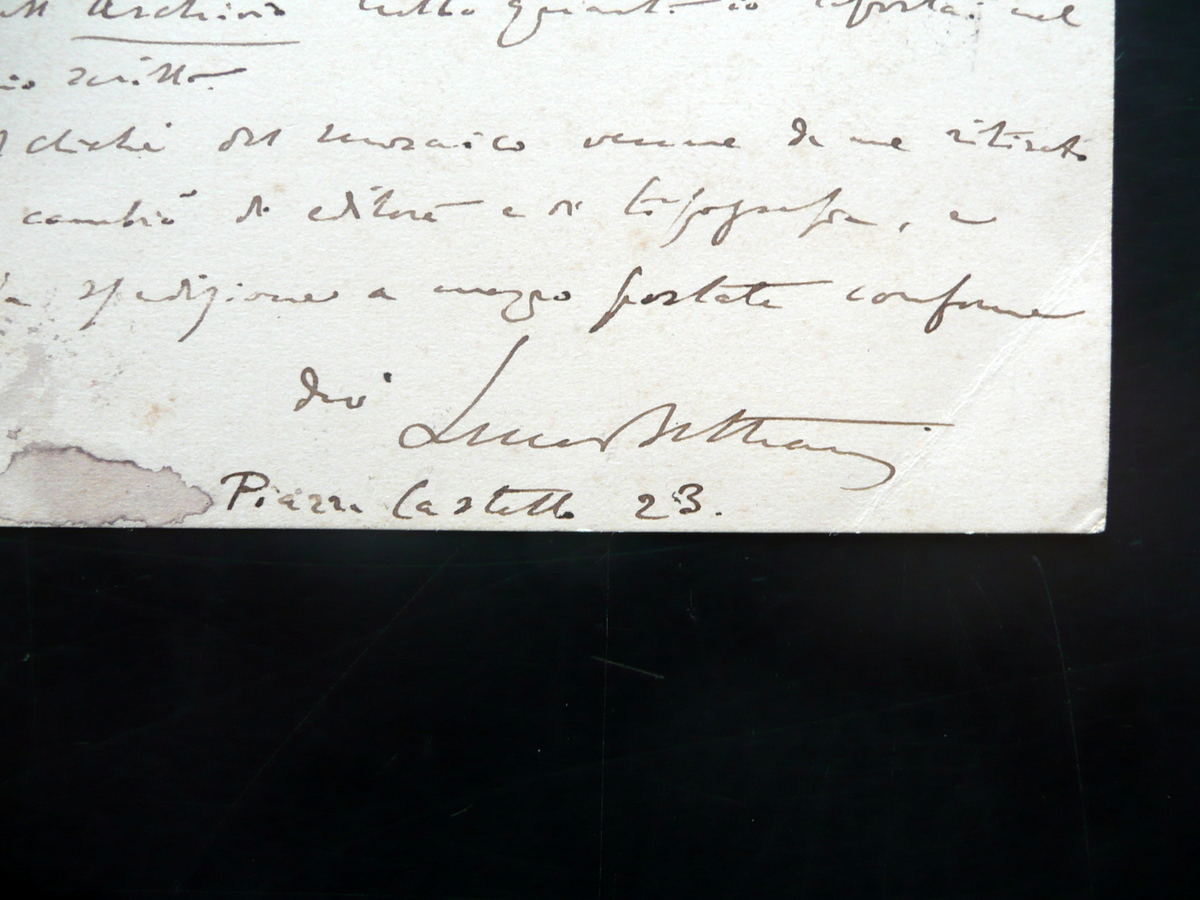 Archivio tutto quanto io esposi nel
scritto.
cliché del mosaico venne da me ritirato
cambiò di editore e di tipografia, e
spedizione a mezzo postale conforme
Luca Beltrami
Piazza Castello 23.